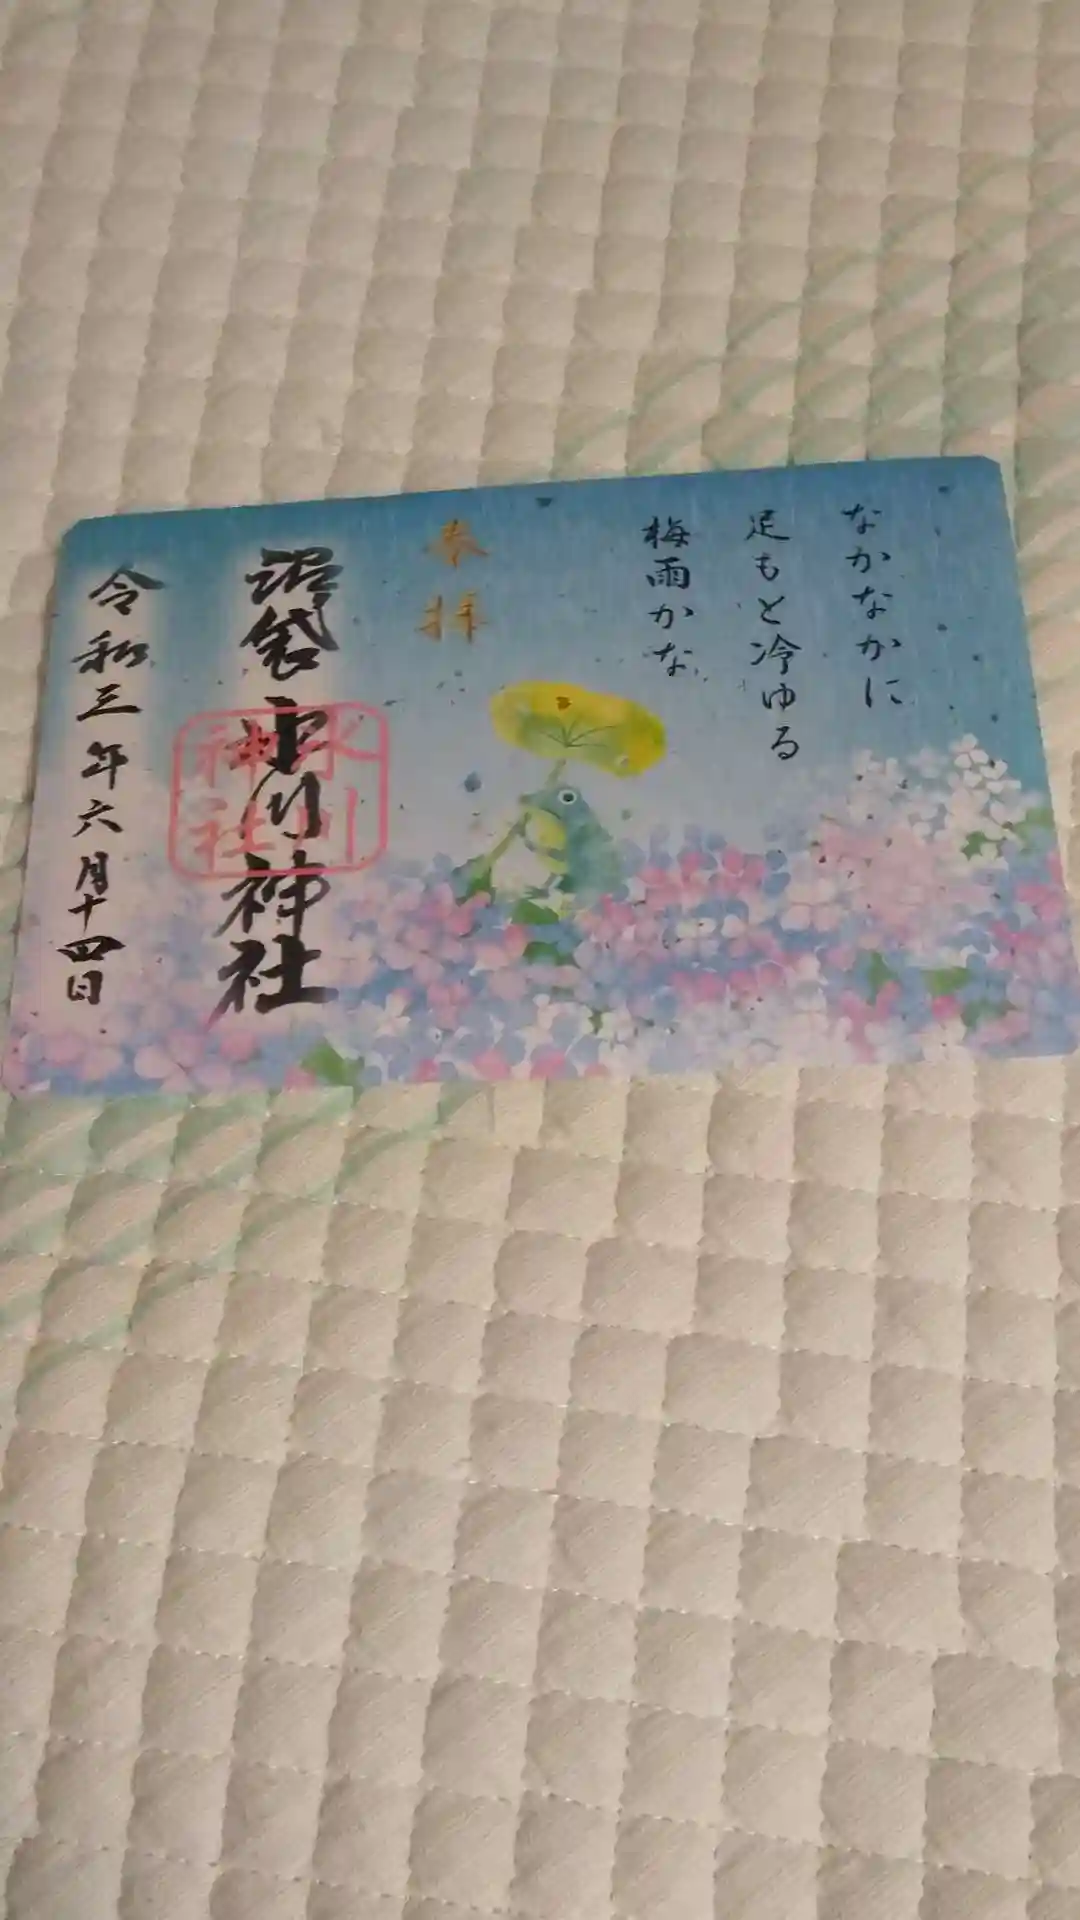 なかなかに
足もと冷ゆる
梅雨かな
奉拝
沼袋氷川神社
氷川
神社
令和三年六月十四日